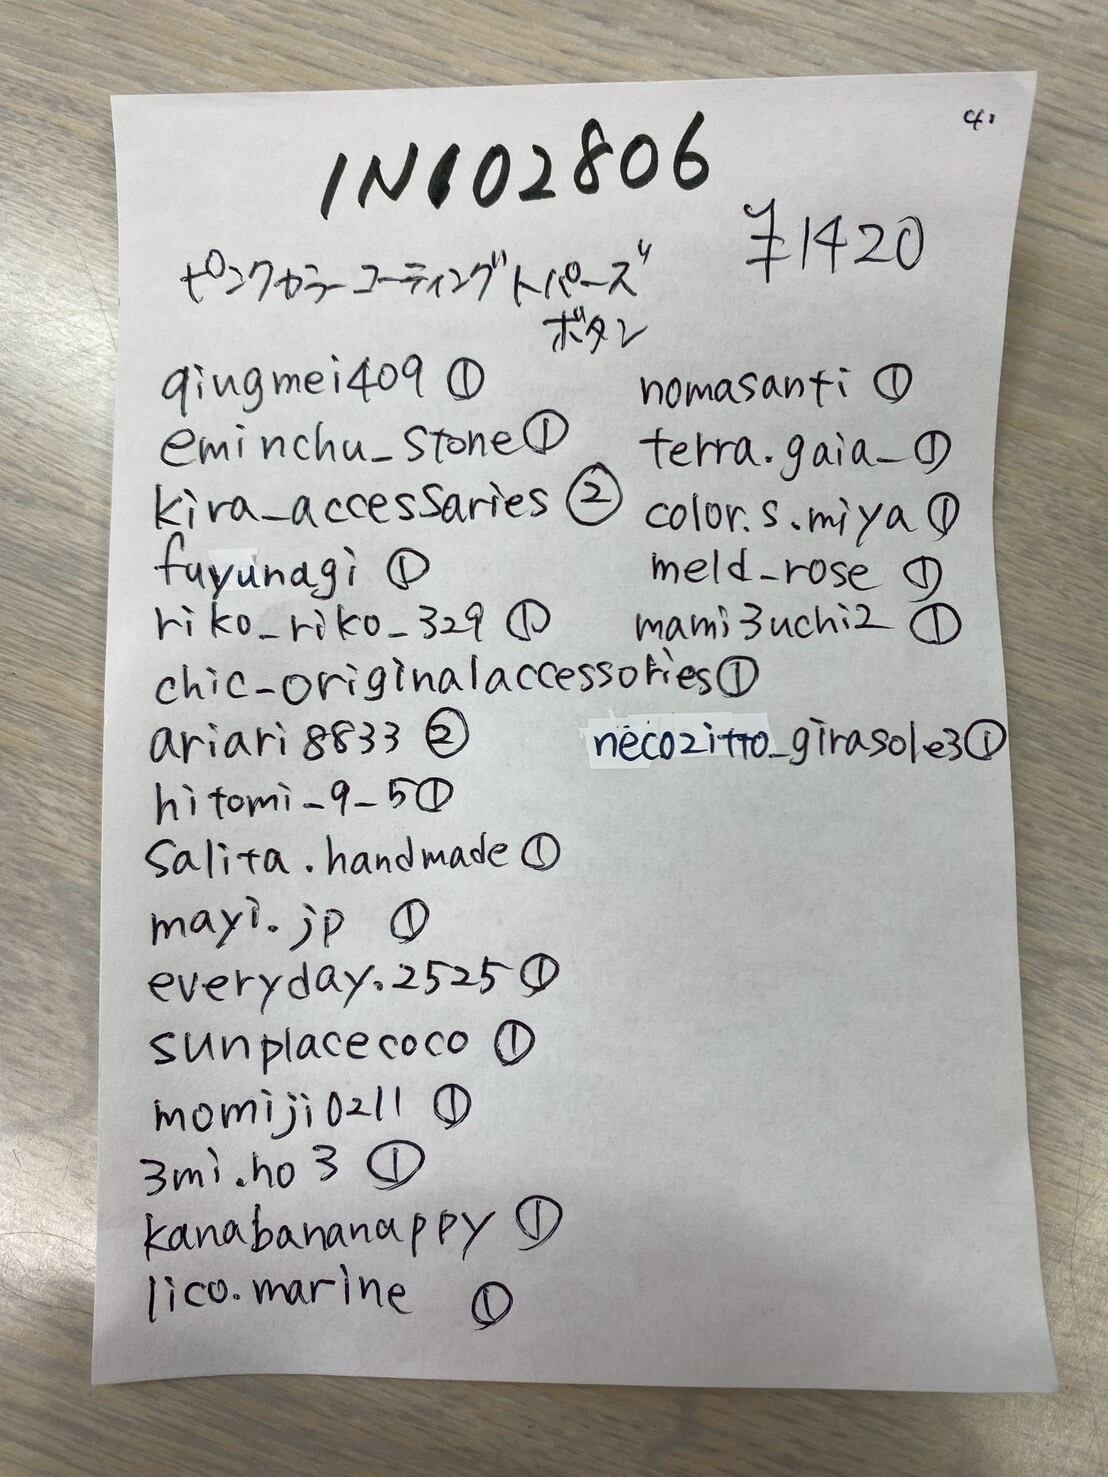 IN102806
¥1420
ピンクカラーコーティングトパーズ
ボタン
qiugmei409 ①
eminchu_stone ①
kira_accessaries ②
fuyunagi ①
riko_riko_329 ①
chic_originalaccessories ①
ariari8833 ②
hitomi_9_5 ①
salita.handmade ①
mayi.jp ①
everyday.2525 ①
sunplacecoco ①
momiji0211 ①
3mi.ho3 ①
kanabananappy ①
lico.marine ①
nomasanti ①
terra.gaia_ ①
color.s.miya ①
meld_rose ①
mami3uchi2 ①
necozitto_girasole3 ①